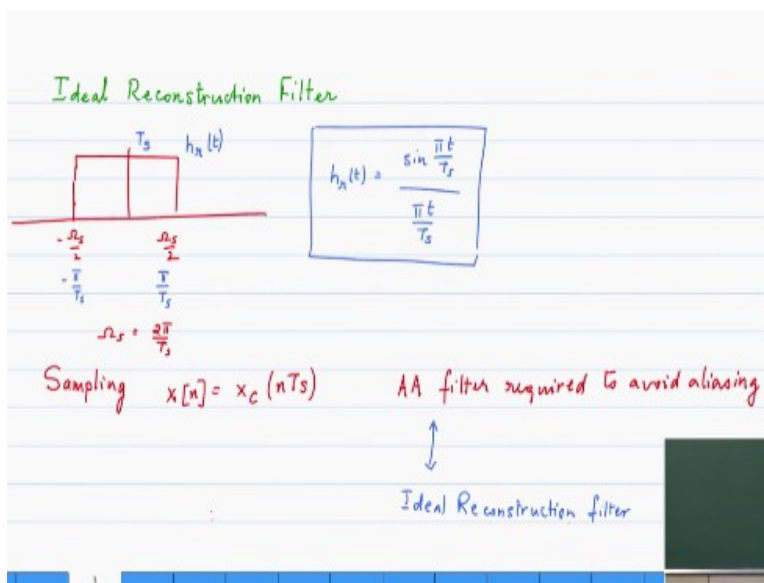 Ideal Reconstruction Filter
T_s h_r(t)
-Ω_s/2 Ω_s/2
-π/T_s π/T_s
Ω_s = 2π/T_s
h_r(t) = (sin πt/T_s)/(πt/T_s)
Sampling x[n] = x_c(nTs) AA filter required to avoid aliasing
Ideal Reconstruction filter